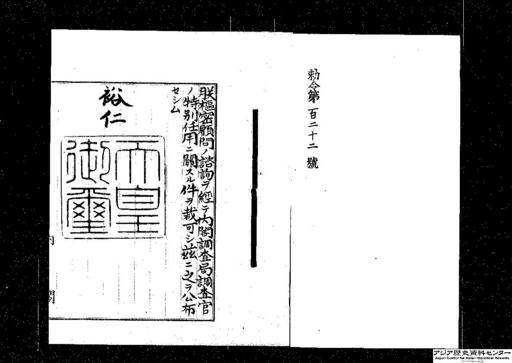 勅令第百二十二號
朕樞密顧問ノ諮詢ヲ經テ内閣調査局調査官
ノ特別任用ニ關スル件ヲ裁可シ茲ニ之ヲ公布
セシム
裕仁
天皇
御璽
内閣
アジア歴史資料センター
Japan Center for Asian Historical Records